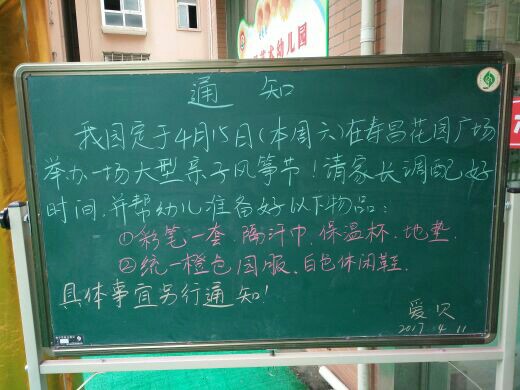 艺术幼儿园
通 知
我园定于4月15日(本周六)在寿昌花园广场
举办一场大型亲子风筝节!请家长调配好
时间.并帮幼儿准备好以下物品:
①彩笔一套.隔汗巾.保温杯.地垫.
②统一橙色园服.白色休闲鞋.
具体事宜另行通知!
爱贝
2017.4.11